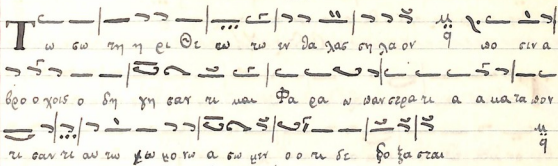 Τ ω σω τη η ρι Θε εω τω εν θα λασ ση λα ον πο σιν α
βρο ο χοις ο δη γη σαν τι και Φα ρα ω παν στρα τι α α κα τα πον
τι σαν τι αυ τω μο νω α σω μεν ο ο τι δε δο ξα σται